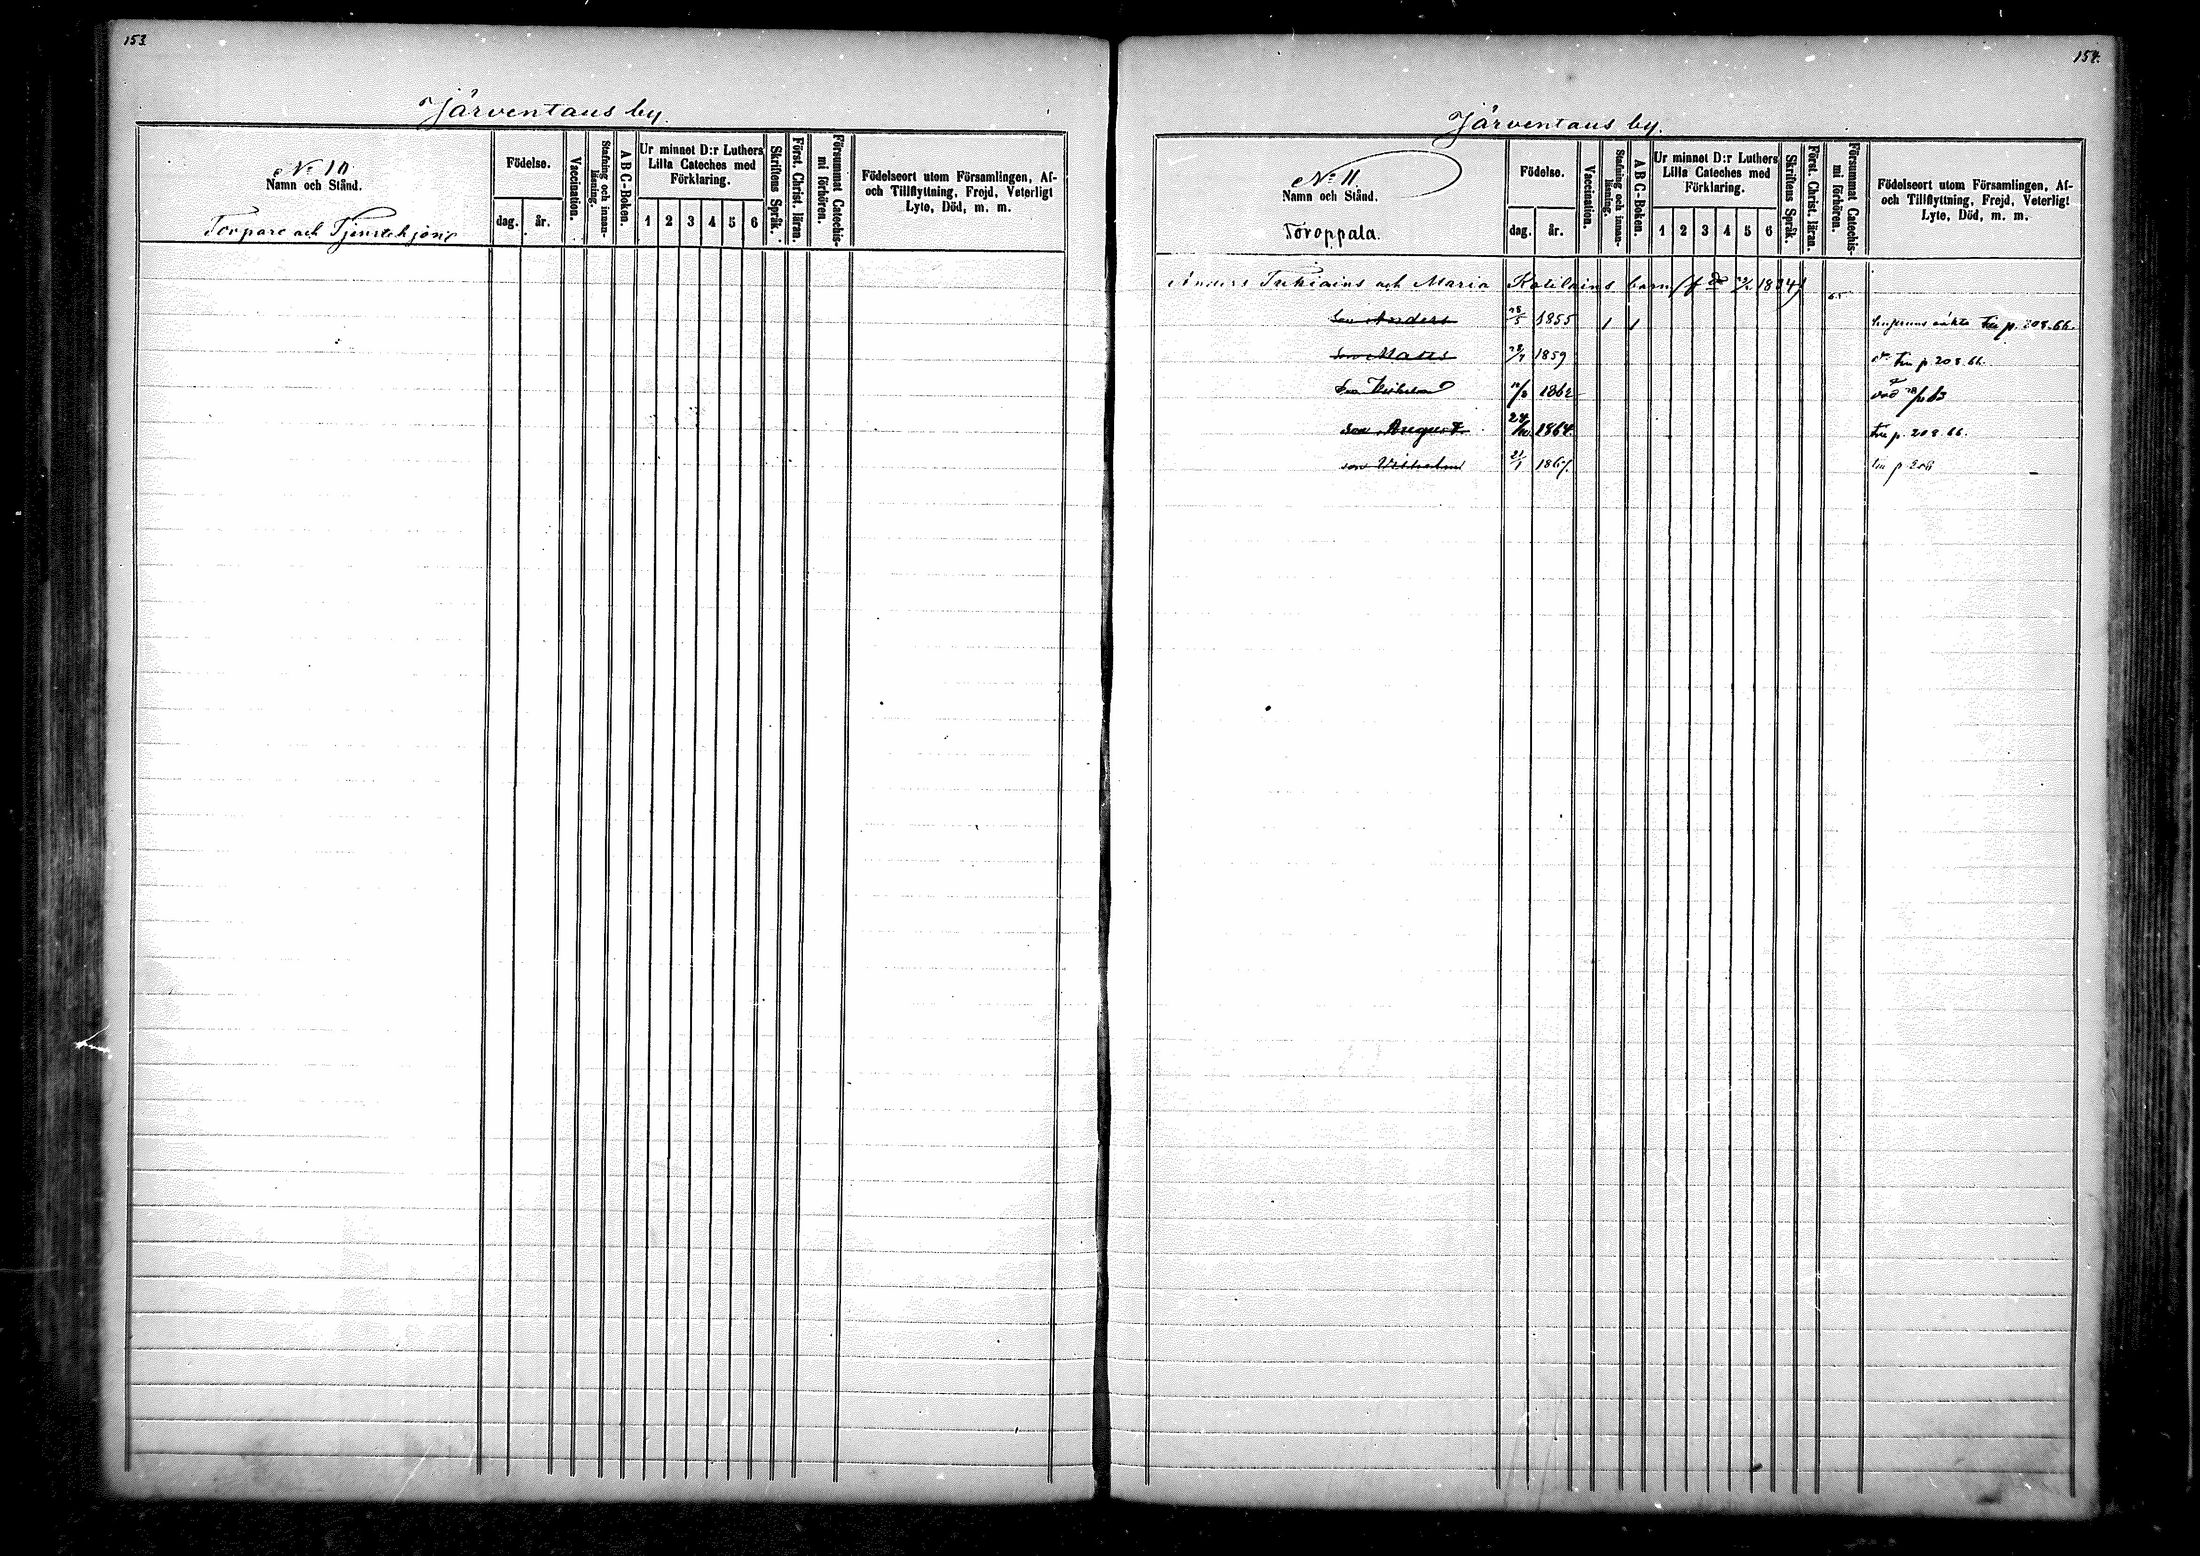 153
Järventaus by.
No 10
Namn och Stånd.
Torpare och Tjenstehjon
Födelse.
dag. år.
Vaccination.
Stafning och innanläsning.
A B C-Boken.
Ur minnet D:r Luthers Lilla Cateches med Förklaring.
1 2 3 4 5 6
Skriftens Språk.
Först. Christ. läran.
Försummat Catechismi förhören.
Födelseort utom Församlingen, Af- och Tillflyttning, Frejd, Veterligt Lyte, Död, m. m.
154.
Järventaus by.
No 11
Namn och Stånd.
Toroppala.
Födelse.
dag. år.
Vaccination.
Stafning och innanläsning.
A B C-Boken.
Ur minnet D:r Luthers Lilla Cateches med Förklaring.
1 2 3 4 5 6
Skriftens Språk.
Först. Christ. läran.
Försummat Catechismi förhören.
Födelseort utom Församlingen, Af- och Tillflyttning, Frejd, Veterligt Lyte, Död, m. m.
Anders Tukiains och Maria Kotilains barn
65
son Anders 1855 1 1 p. 208. 66.
son Mats 1859 p. 208. 66.
son Vilhelm 1862 63
son August 24 1864. p. 208. 66.
son Vilhelm 21/1 1867. p 208